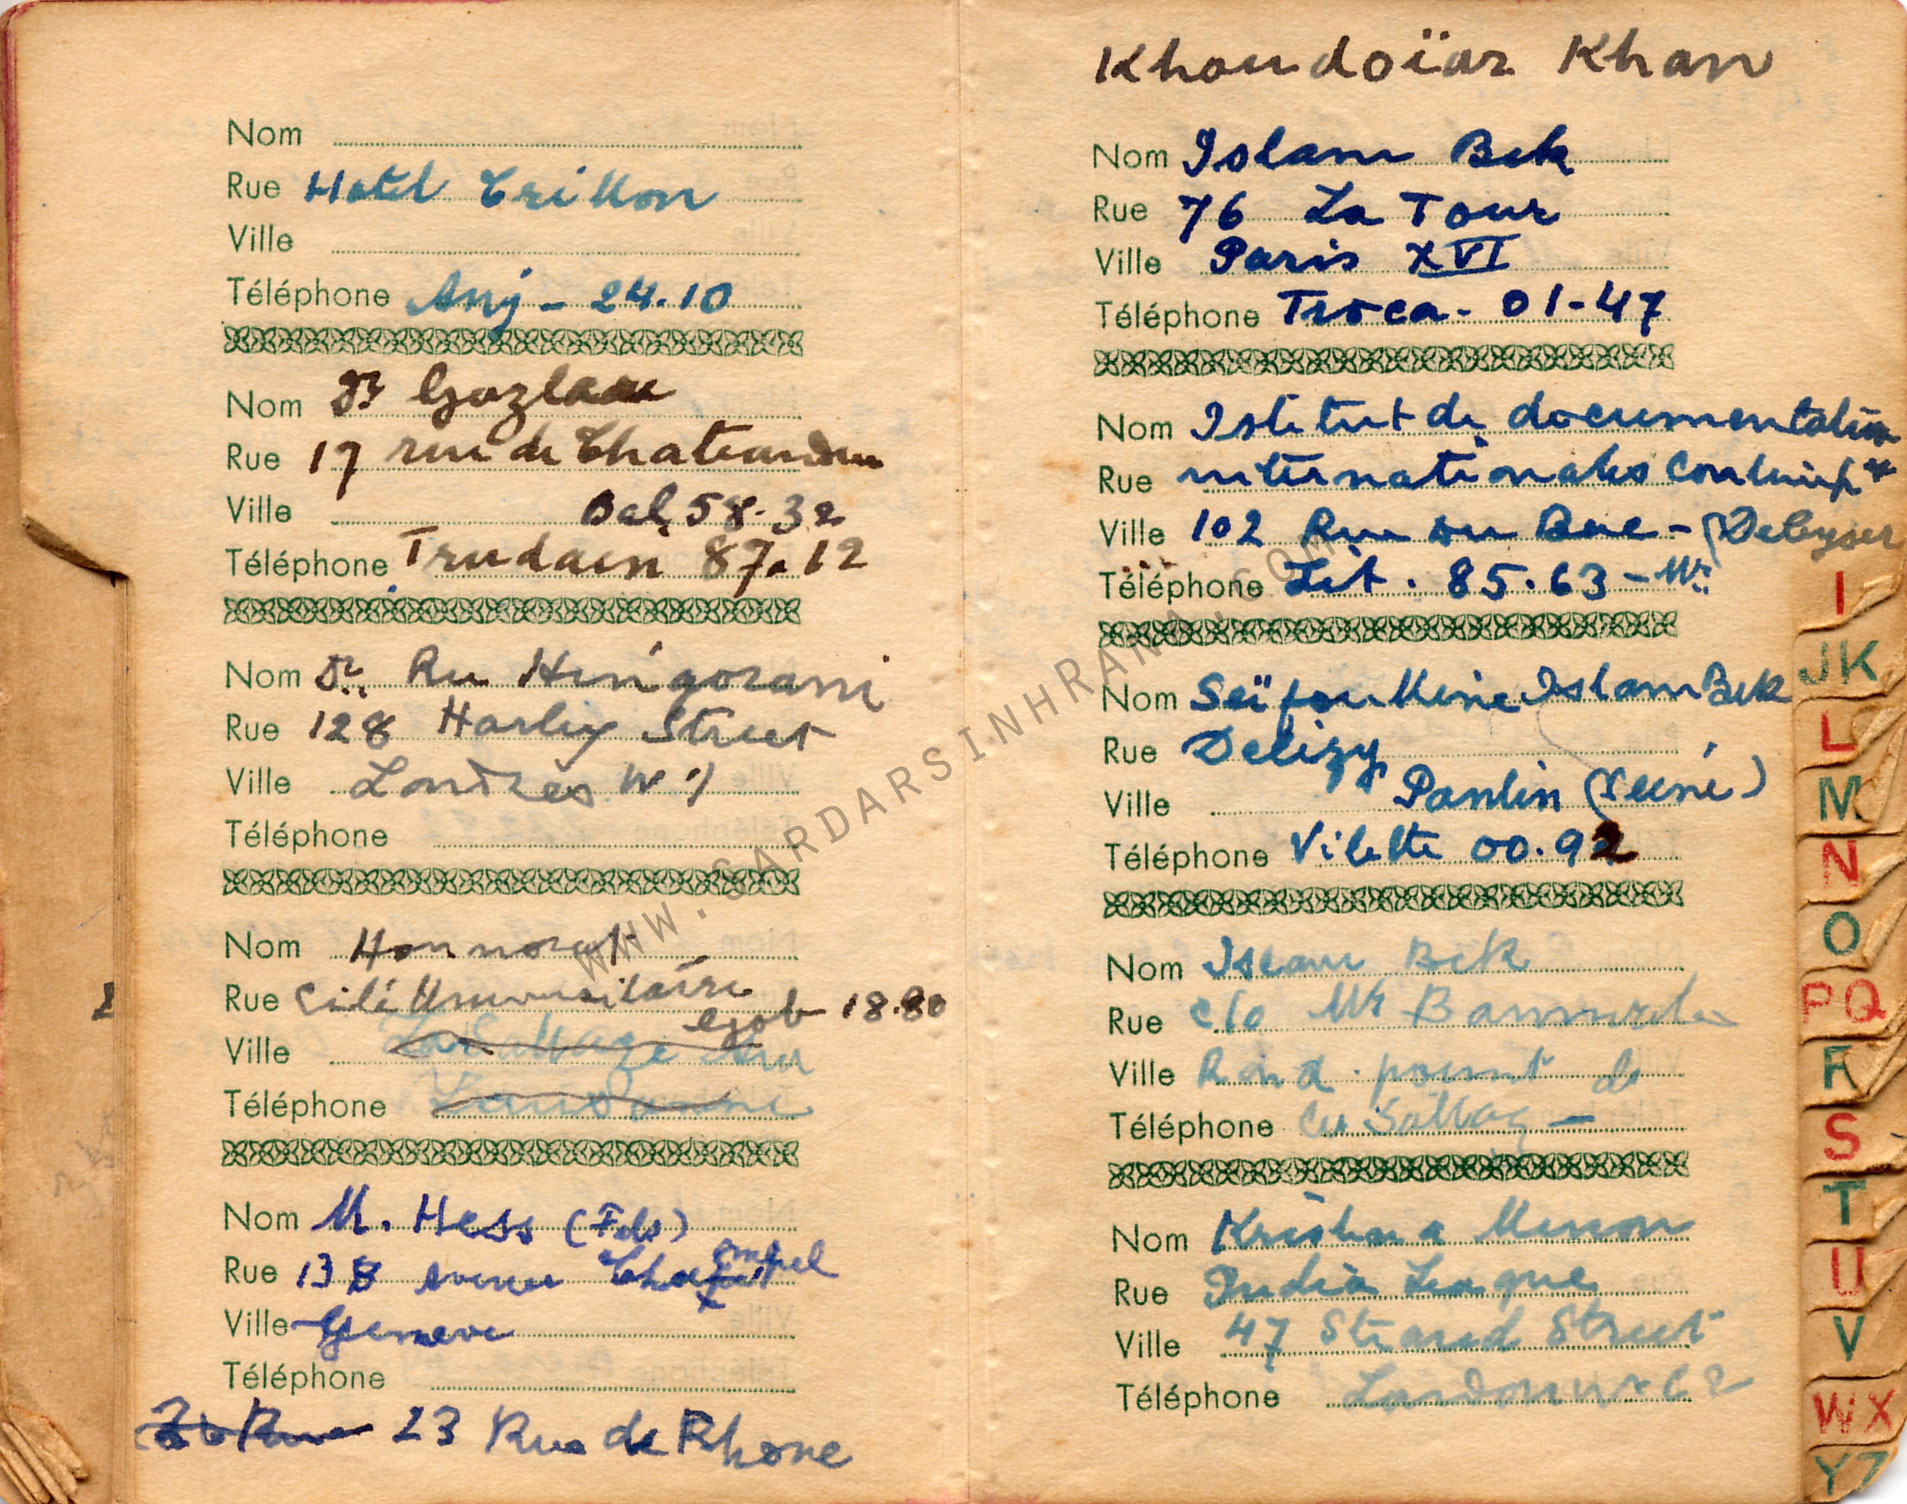 Nom
Rue Hotel Crillon
Ville
Téléphone Anj - 24.10
Nom Dr Gozlan
Rue 17 rue de Chateaudun
Ville Bal 58.32
Téléphone Trudain 87.12
Nom Dr. Hingorani
Rue 128 Harley Street
Ville Londres W.1
Téléphone
Nom Honnorat
Rue Cité Universitaire
Gob 18.80
Ville La Sallaz
Téléphone Lausanne
Nom M. Hess (Fels)
Rue 13 avenue Champel
Ville Geneve
Téléphone
23 Rue de Rhone
Khoudoïar Khan
Nom Islam Bek
Rue 76 La Tour
Ville Paris XVI
Téléphone Troca - 01-47
Nom Istitut de documentation
Rue internationales
Ville 102 Rue du Bac - (
Téléphone Lit. 85.63 - Mr.
Nom Seïfoulline Islam Bek
Rue Delizy
Ville Pantin (Seine)
Téléphone Vilette 00.92
Nom Islam Bek
Rue c/o Mr
Ville Rond-point de
Téléphone La Sallaz -
Nom Krishna Menon
Rue India League
Ville 47 Strand Street
Téléphone London W C 2
I
JK
L
M
N
O
PQ
R
S
T
U
V
WX
YZ
WWW.SARDARSINHRANA.COM